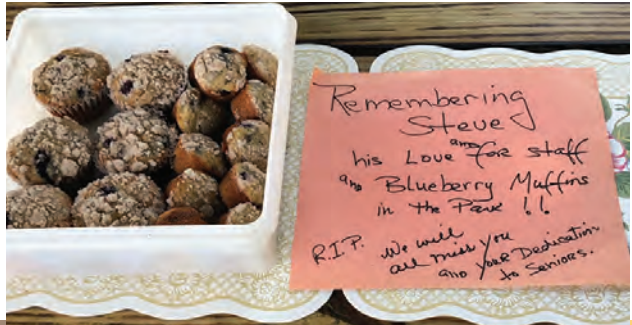 Remembering
Steve
his Love and for staff
and Blueberry Muffins
in the Park !!
R.I.P. We will
all miss you
and your Dedication
to Seniors.